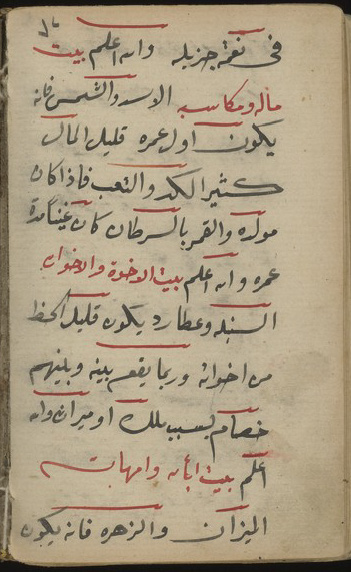 في نعمة جزيله والله اعلم بيت
ماله ومكاسبه الاسد والشمس فانه
يكون اول عمره قليل المال
كثير الكد والتعب فاذا كان
مولده والقمر بالسرطان كان غنيا مدة
عمره والله اعلم بيت الاخوة والاخوات
السنبله وعطارد يكون قليل الحظ
من اخوانه وربما يقع بينه وبينهم
خصام بسبب ملك او ميراث والله
اعلم بيت ابائه وامهاته
الميزان والزهره فانه يكون